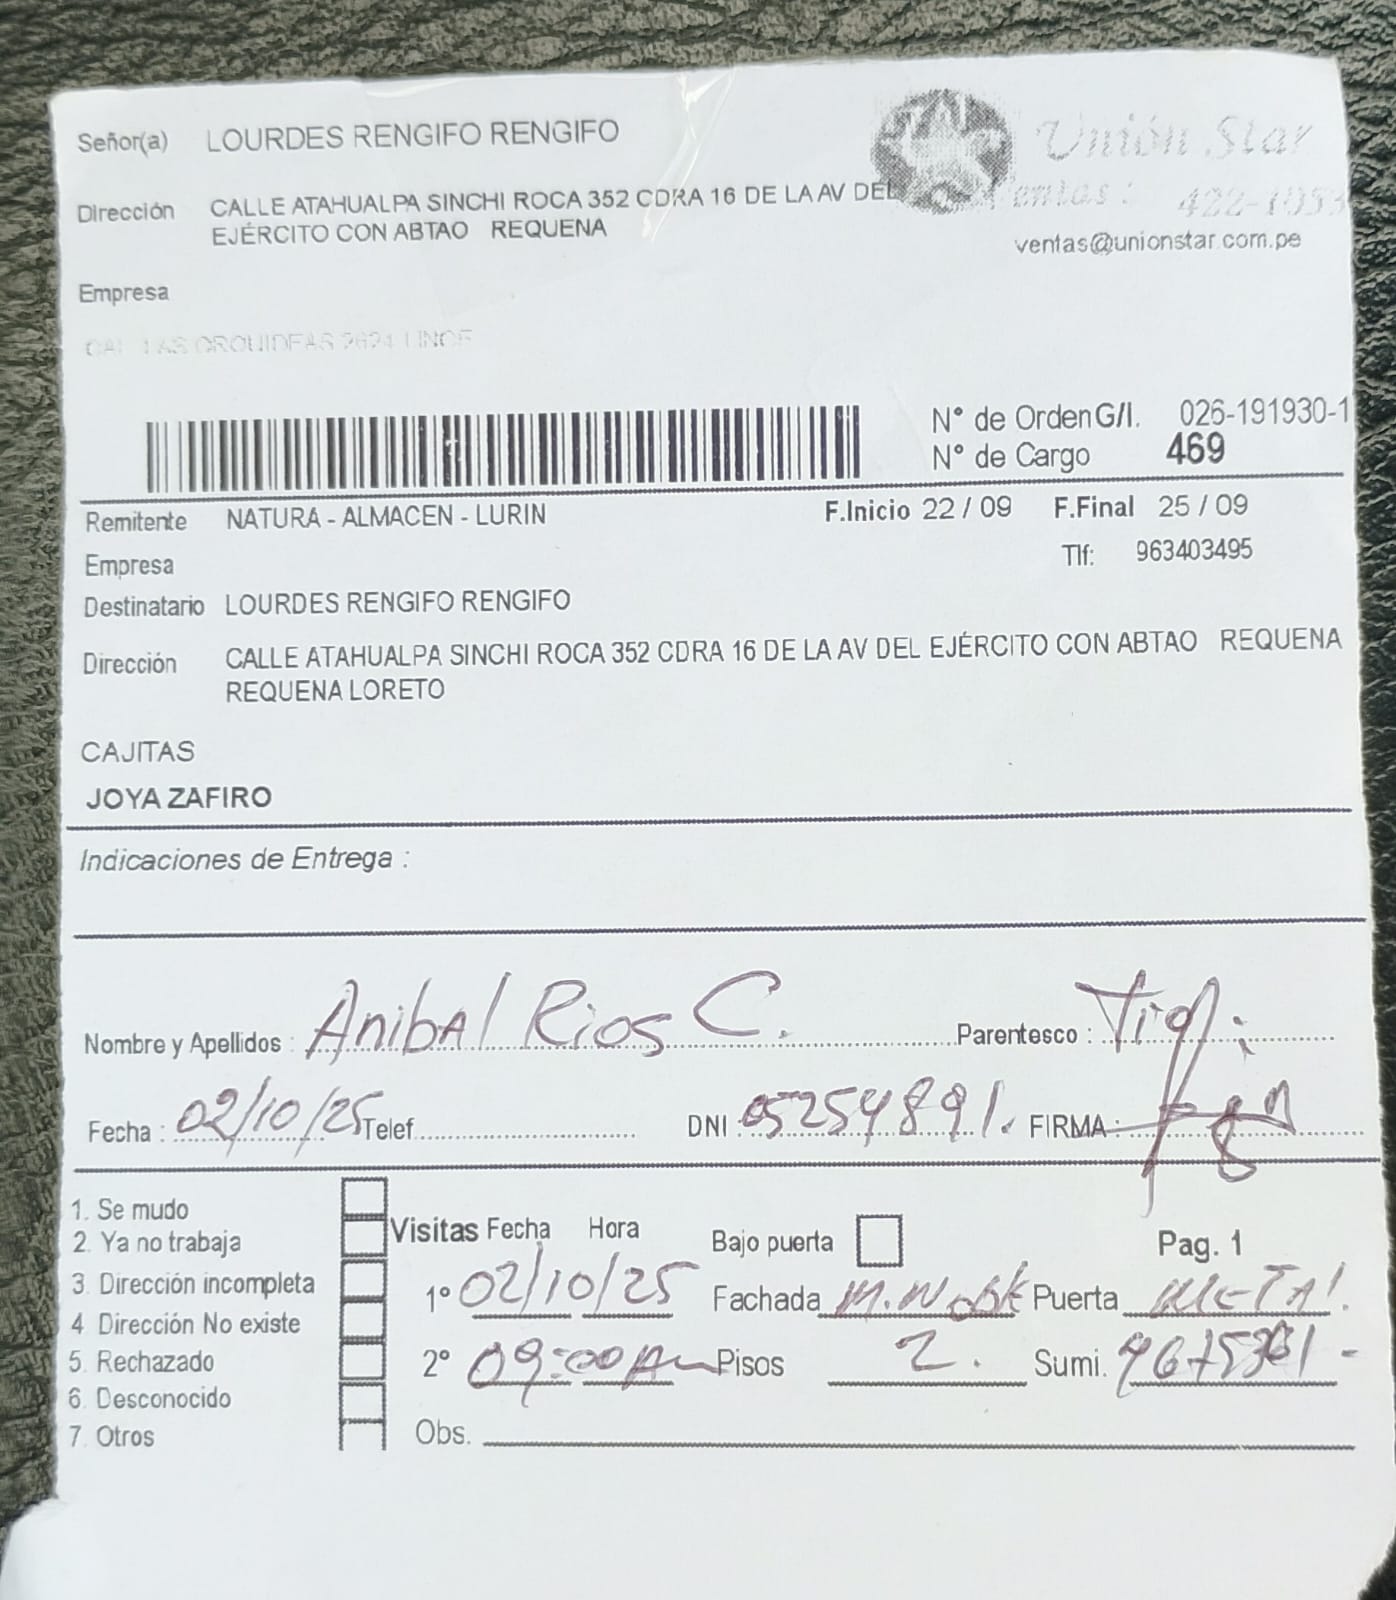 Señor(a) LOURDES RENGIFO RENGIFO
Unión Star
Dirección CALLE ATAHUALPA SINCHI ROCA 352 CDRA 16 DE LA AV DEL
Ventas : 422-1053
EJÉRCITO CON ABTAO REQUENA
ventas@unionstar.com.pe
Empresa
CAL LAS ORQUIDEAS 2624 LINCE
N° de Orden G/I. 026-191930-1
N° de Cargo 469
Remitente NATURA - ALMACEN - LURIN F.Inicio 22 / 09 F.Final 25 / 09
Empresa Tlf: 963403495
Destinatario LOURDES RENGIFO RENGIFO
Dirección CALLE ATAHUALPA SINCHI ROCA 352 CDRA 16 DE LA AV DEL EJÉRCITO CON ABTAO REQUENA
REQUENA LORETO
CAJITAS
JOYA ZAFIRO
Indicaciones de Entrega :
Nombre y Apellidos : Anibal Rios C. Parentesco :
Fecha : 02/10/25 Telef. DNI : 05254891. FIRMA :
1. Se mudo
2. Ya no trabaja
3. Dirección incompleta
4 Dirección No existe
5. Rechazado
6. Desconocido
7. Otros
Visitas Fecha Hora Bajo puerta Pag. 1
1° 02/10/25 Fachada M. Noble Puerta METAl.
2° 09:00 Am Pisos 2. Sumi.
Obs.